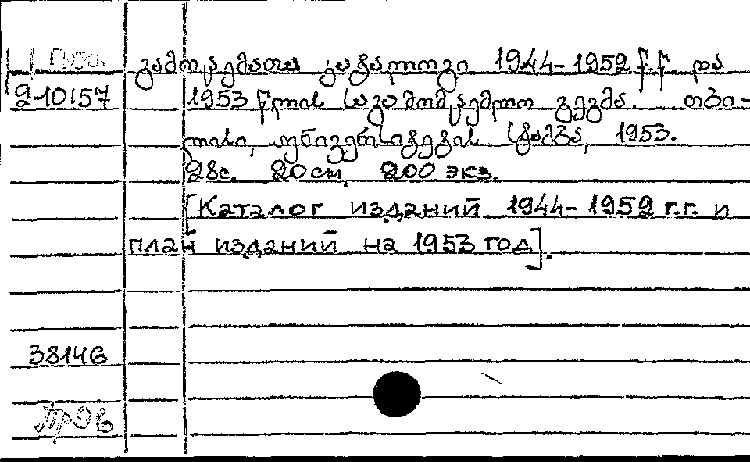 გამოცემათა კატალოგი 1944-1952 წ.წ და
9-10157 1953 წლის საგამომცემლო გეგმა. თბი-
ლისი, უნივერსიტეტის სტამბა, 1953.
28с. 20см. 200 экз.
[Каталог изданий 1944-1952 г.г. и
план изданий на 1953 год].
38146